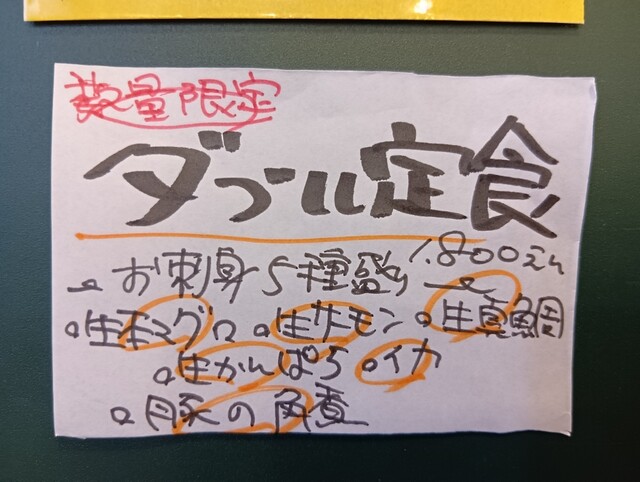 数量限定
ダブル定食
1.800えん
お刺身5種盛り
生本マグロ 生サーモン 生真鯛
生かんぱち イカ
豚の角煮